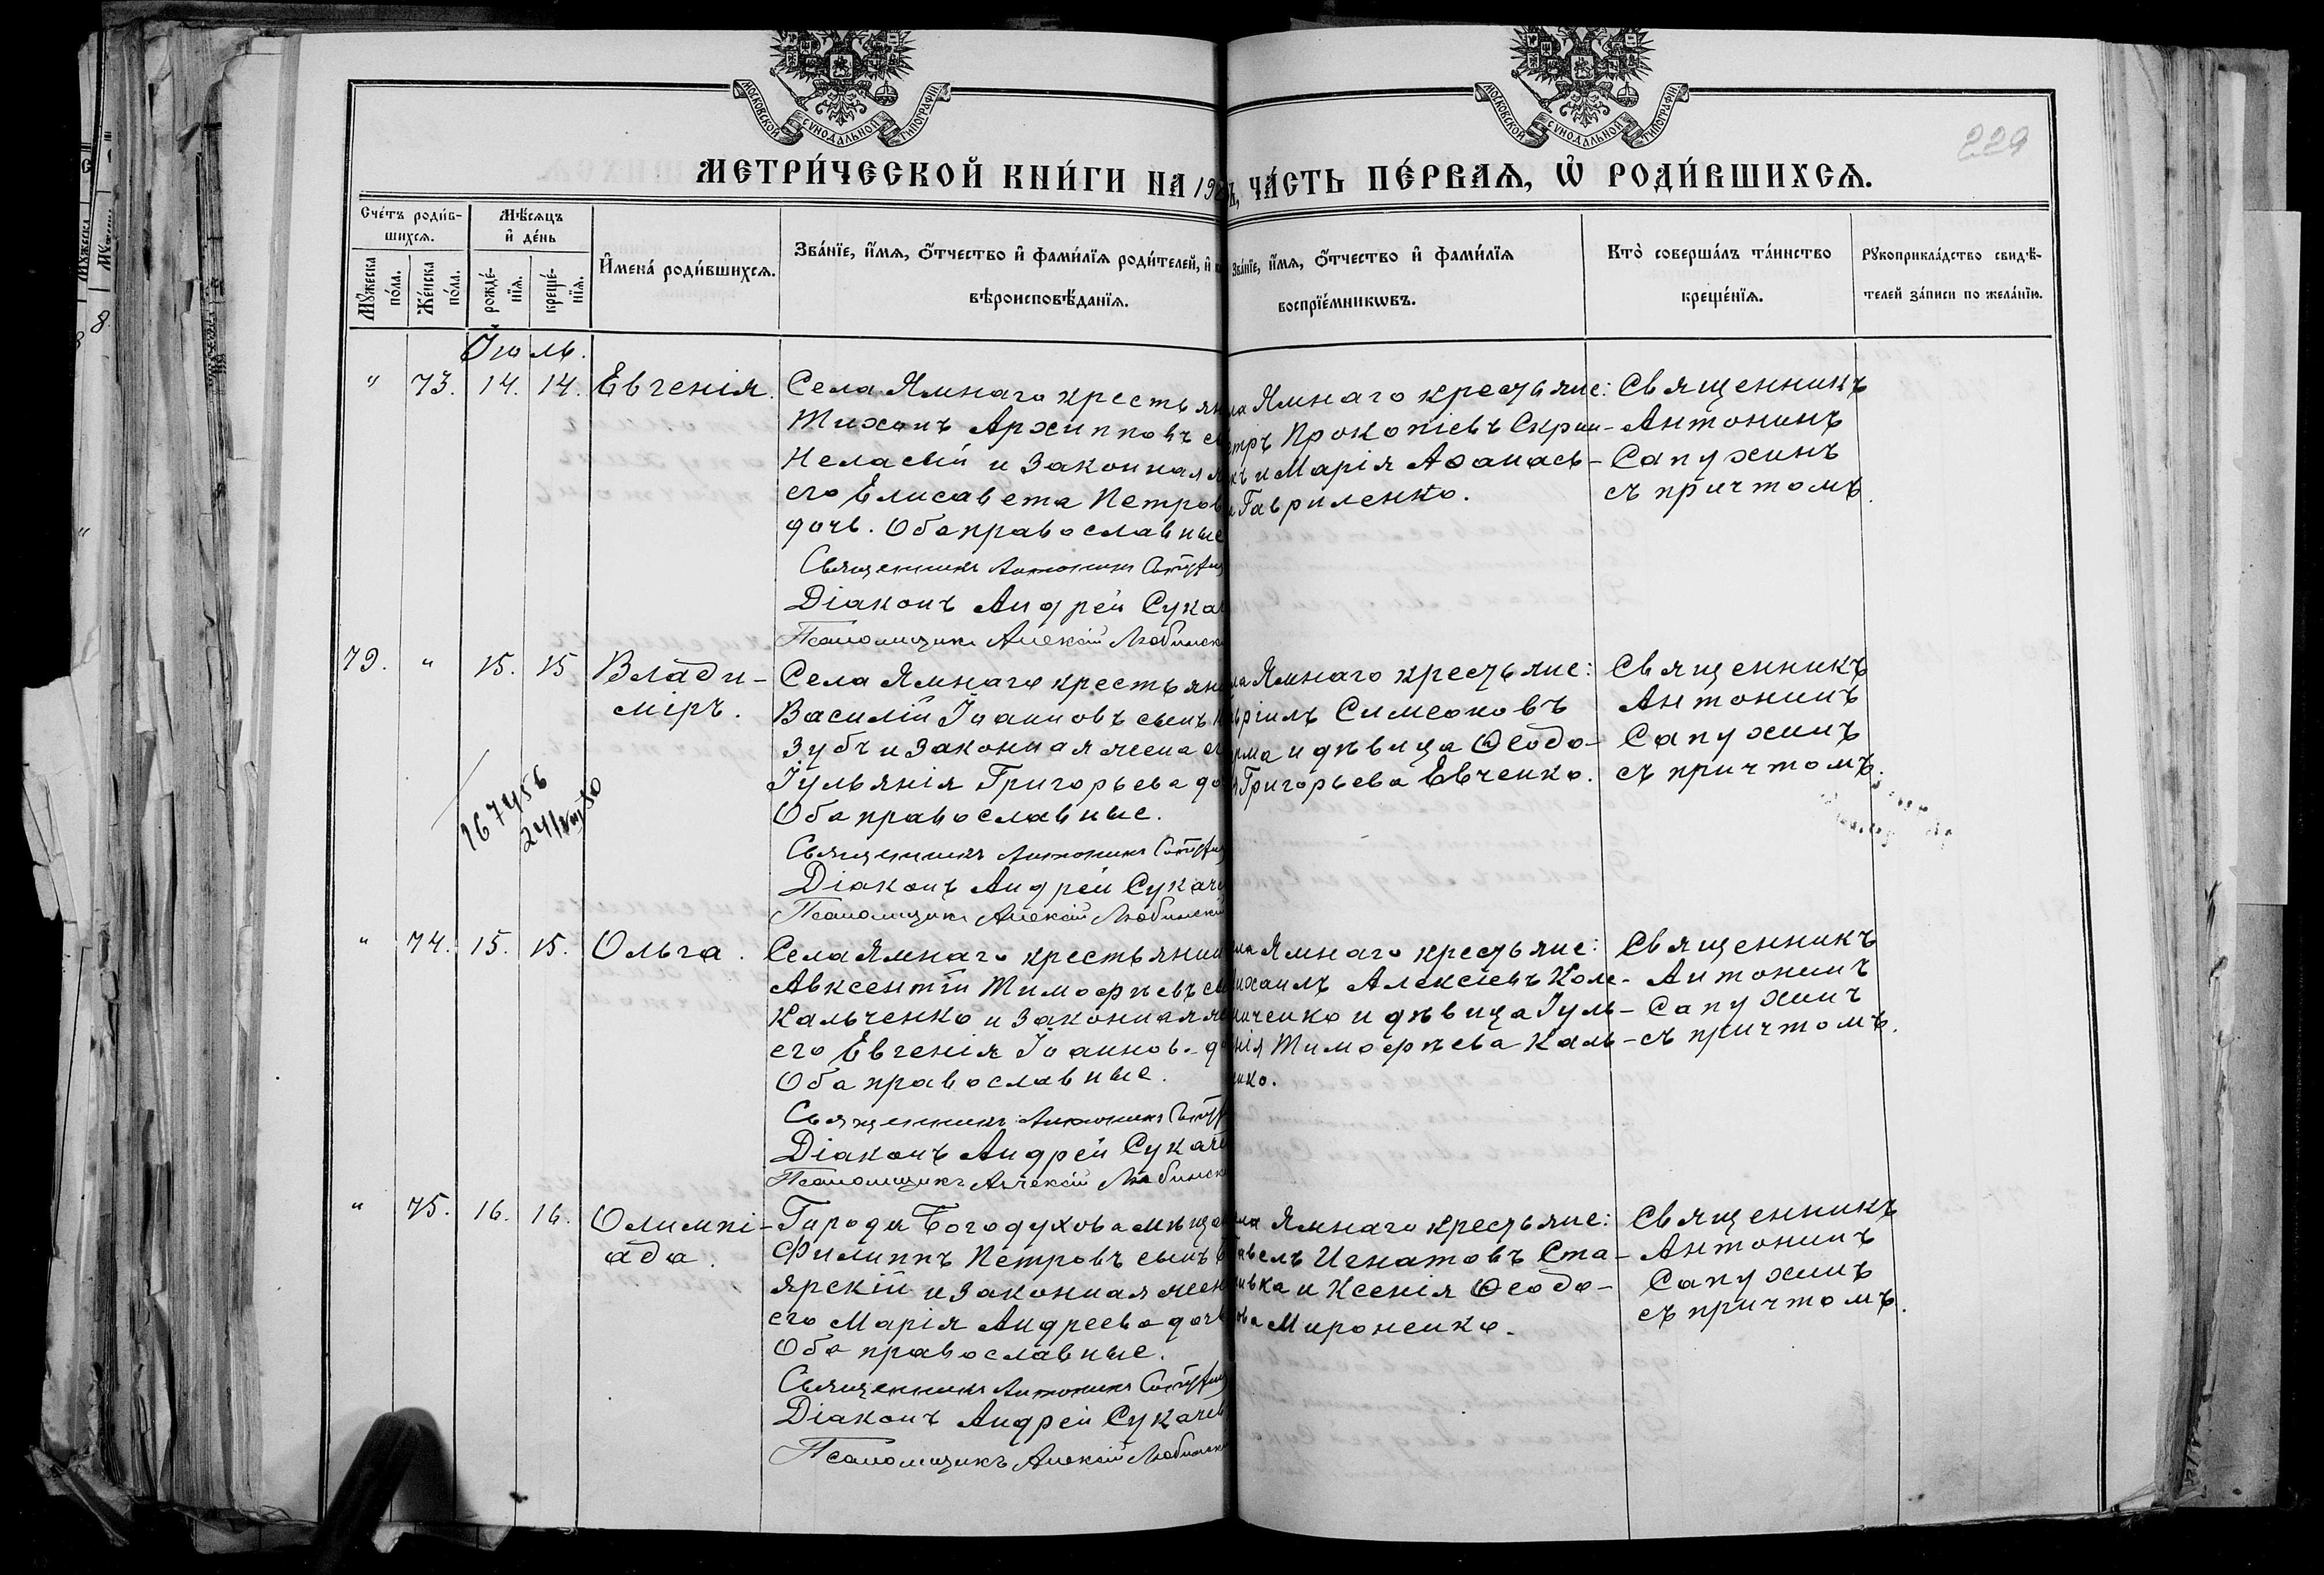 МОСКОВСКОЙ СѴНОДАЛЬНОЙ ТИПОГРАФІИ
МОСКОВСКОЙ СѴНОДАЛЬНОЙ ТИПОГРАФІИ
229
МЕТРИ́ЧЕСКОЙ КНИ́ГИ НА 19
ЧА́СТЬ ПЕ́РВАѦ, Ѡ҆ РОДИ́ВШИХСѦ.
Счетъ роди́в-
шихсѧ.
Мꙋ́жеска
по́ла.
Же́нска
по́ла.
Мѣ́сѧцъ
и҆ де́нь
рожде́-
нїѧ.
креще́-
нїѧ.
И҆мена̀ роди́вшихсѧ.
Зва́нїе, и҆́мѧ, ѻ҆́тчество и҆ фами́лїѧ роди́телей, и҆
вѣроисповѣ́данїѧ.
Зва́нїе, и҆́мѧ, ѻ҆́тчество и҆ фами́лїѧ
воспрїе́мникѡвъ.
Кто̀ соверша́лъ та́инство
креще́нїѧ.
Рꙋкоприкла́дство свидѣ́-
телей за́писи по жела́нїю.
Іюль.
" 73. 14. 14. Евгенія.
Села Ямнаго крестьян
Тихонъ Архипповъ с
Неласый и законная
его Елисавета Петров
дочь. Оба православные
Священникъ Антонинъ Сапухин
Діаконъ Андрей Сука
Псаломщикъ Алексій Любинск
Ямнаго крестьяне:
Прокопіевъ Скрип-
и Марія Аѳанась-
Гавриленко.
Священникъ
Антонинъ
Сапухинъ
съ причтомъ.
79. " 15. 15 Влади-
міръ.
167456
24/VIII 50
Села Ямнаго крестьян
Василій Іоанновъ сынъ
Зубъ и законная жена
Іульянія Григорьева до
Оба православные.
Священникъ Антонинъ Сапухин
Діаконъ Андрей Сукаче
Псаломщикъ Алексій Любинскій
Ямнаго крестьяне:
Симеоновъ
и дѣвица Ѳеодо-
Григорьева Евченко.
Священникъ
Антонинъ
Сапухинъ
съ причтомъ.
" 74. 15. 15. Ольга.
Села Ямнаго крестьянин
Авксентій Тимоѳѣевъ
Кальченко и законная
его Евгенія Іоаннов. до
Оба православные.
Священникъ Антонинъ Сапух
Діаконъ Андрей Сукаче
Псаломщикъ Алексій Любинск
Ямнаго крестьяне:
Алексіевъ Коле-
ниченко и дѣвица Іуль-
нія Тимофѣева Каль-
нко.
Священникъ
Антонинъ
Сапухинъ
съ причтомъ.
" 75. 16. 16. Олимпі-
ада.
Города Богодухова мѣщан
Филиппъ Петровъ сынъ
ярскій и законная жен
его Марія Андреева дочь
Оба православные.
Священникъ Антонинъ Сапухин
Діаконъ Андрей Сукачев
Псаломщикъ Алексій Любинск
Ямнаго крестьяне:
Павелъ Игнатовъ Ста-
ивка и Ксенія Ѳеодо-
ова Мироненко.
Священникъ
Антонинъ
Сапухинъ
съ причтомъ.